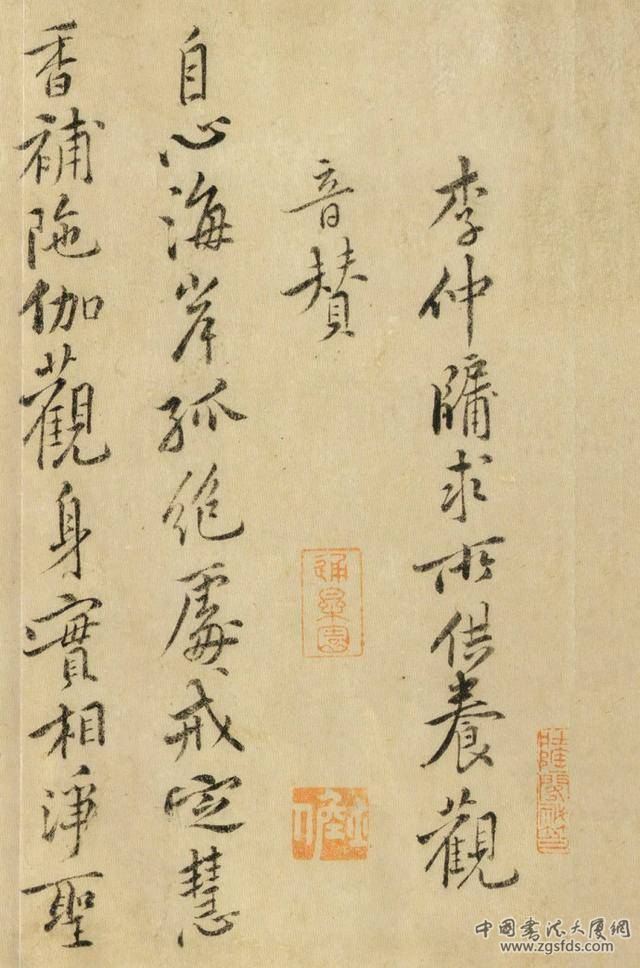 李仲牖求所供养觀
音贊
自心海岸孤绝處戒定慧
香補陁伽觀身實相淨聖
中國書法大廈網
www.zgsfds.com